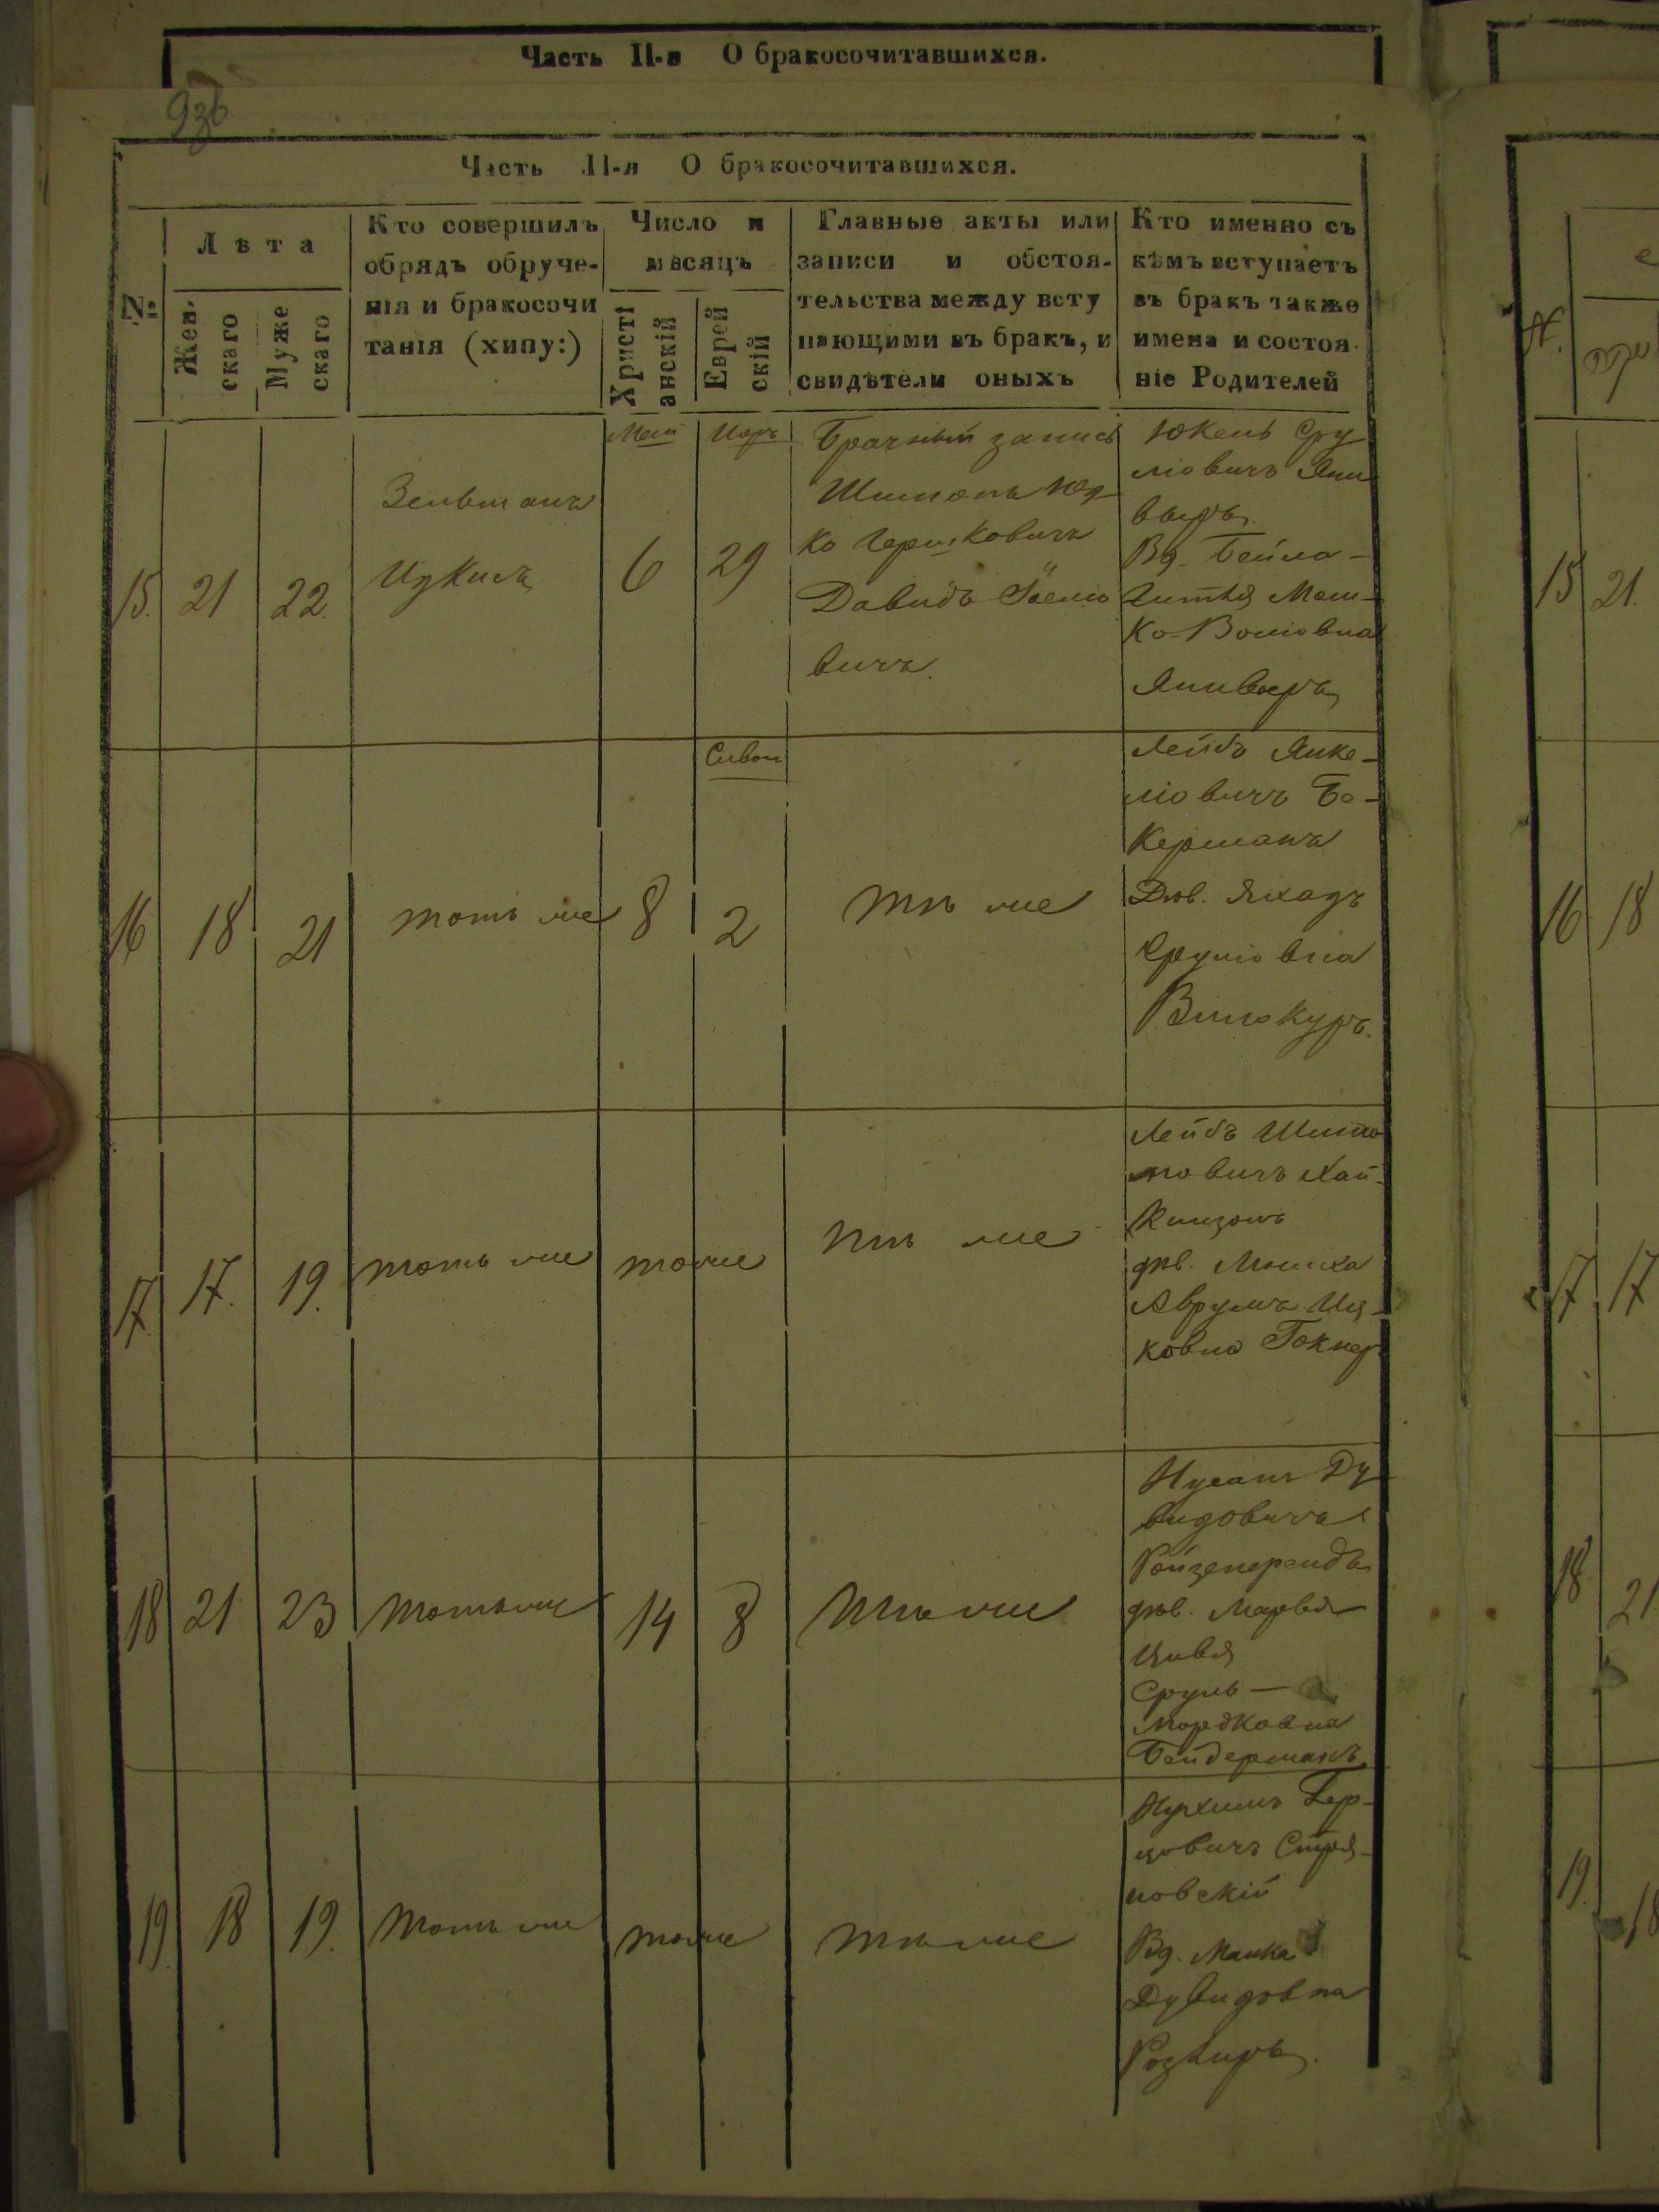 Часть II-я О бракосочитавшихся.
936
Часть II-я О бракосочитавшихся.
№
Лѣта
Жен.
скаго
Муже
скаго
Кто совершилъ
обрядъ обруче-
нія и бракосочи
танія (хипу:)
Число и
мѣсяцъ
Христі
анскій
Еврей
скій
Главные акты или
записи и обстоя-
тельства между всту
пающими въ бракъ, и
свидѣтели оныхъ
Кто именно съ
кѣмъ вступаетъ
въ бракъ также
имена и состоя
ніе Родителей
15. 21 22.
Зельманъ
Ицкисъ
Май
6
Іяръ
29
Брачный запись
Шимонъ Юд
ко Гершковичъ
Давидъ
вичъ.
Юкель Сру
ліовичъ
Вд. Бейла-
Гитля Мош-
ко-Воліовна
16 18 21
тотъ же
8
Сиван
2
тѣ же
Лейбъ Янке-
ліовичъ Бо-
керманъ
Дѣв. Яхадъ
Сруліовна
Винокуръ.
17. 17. 19.
тотъ же
тоже
тѣ же
Лейбъ Шимо
новичъ Хай-
кинзонъ
дѣв.
Аврумъ Иц-
ковна
18 21 23
тотъ же
14 8
тѣ же
Нусанъ Ду
видовичъ
дѣв.
Цивя
Сруль-
Мордковна
Бейдерманъ
19. 18 19.
тотъ же
тоже
тѣ же
Нухимъ Бер-
ковичъ
новскій
Вд. Манка
Дувидовна
15 21.
16 18
17 17
18 21
19. 18